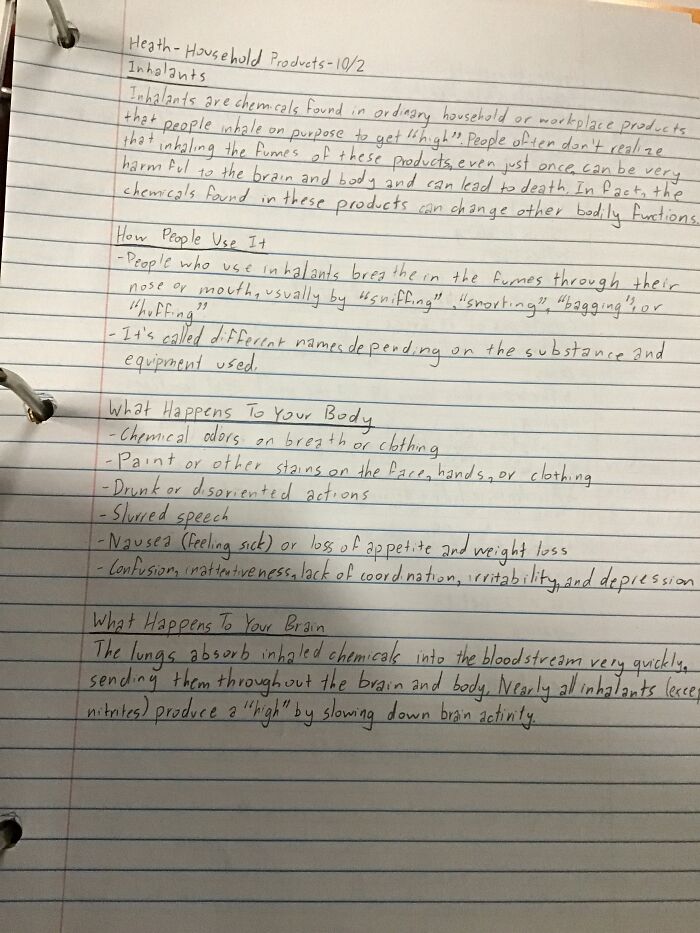 Heath-Household Products-10/2
Inhalants
Inhalants are chemicals found in ordinary household or workplace products
that people inhale on purpose to get "high". People often don't realize
that inhaling the fumes of these products, even just once, can be very
harmful to the brain and body and can lead to death. In fact, the
chemicals found in these products can change other bodily functions.
How People Use It
-People who use inhalants breathe in the fumes through their
nose or mouth, usually by "sniffing", "snorting", "bagging", or
"huffing"
- It's called different names depending on the substance and
equipment used.
What Happens To Your Body
-Chemical odors on breath or clothing
-Paint or other stains on the face, hands, or clothing
-Drunk or disoriented actions
-Slurred speech
-Nausea (feeling sick) or loss of appetite and weight loss
-Confusion, inattentiveness, lack of coordination, irritability, and depression
What Happens To Your Brain
The lungs absorb inhaled chemicals into the bloodstream very quickly,
sending them throughout the brain and body. Nearly all inhalants (excep
nitrites) produce a "high" by slowing down brain activity.